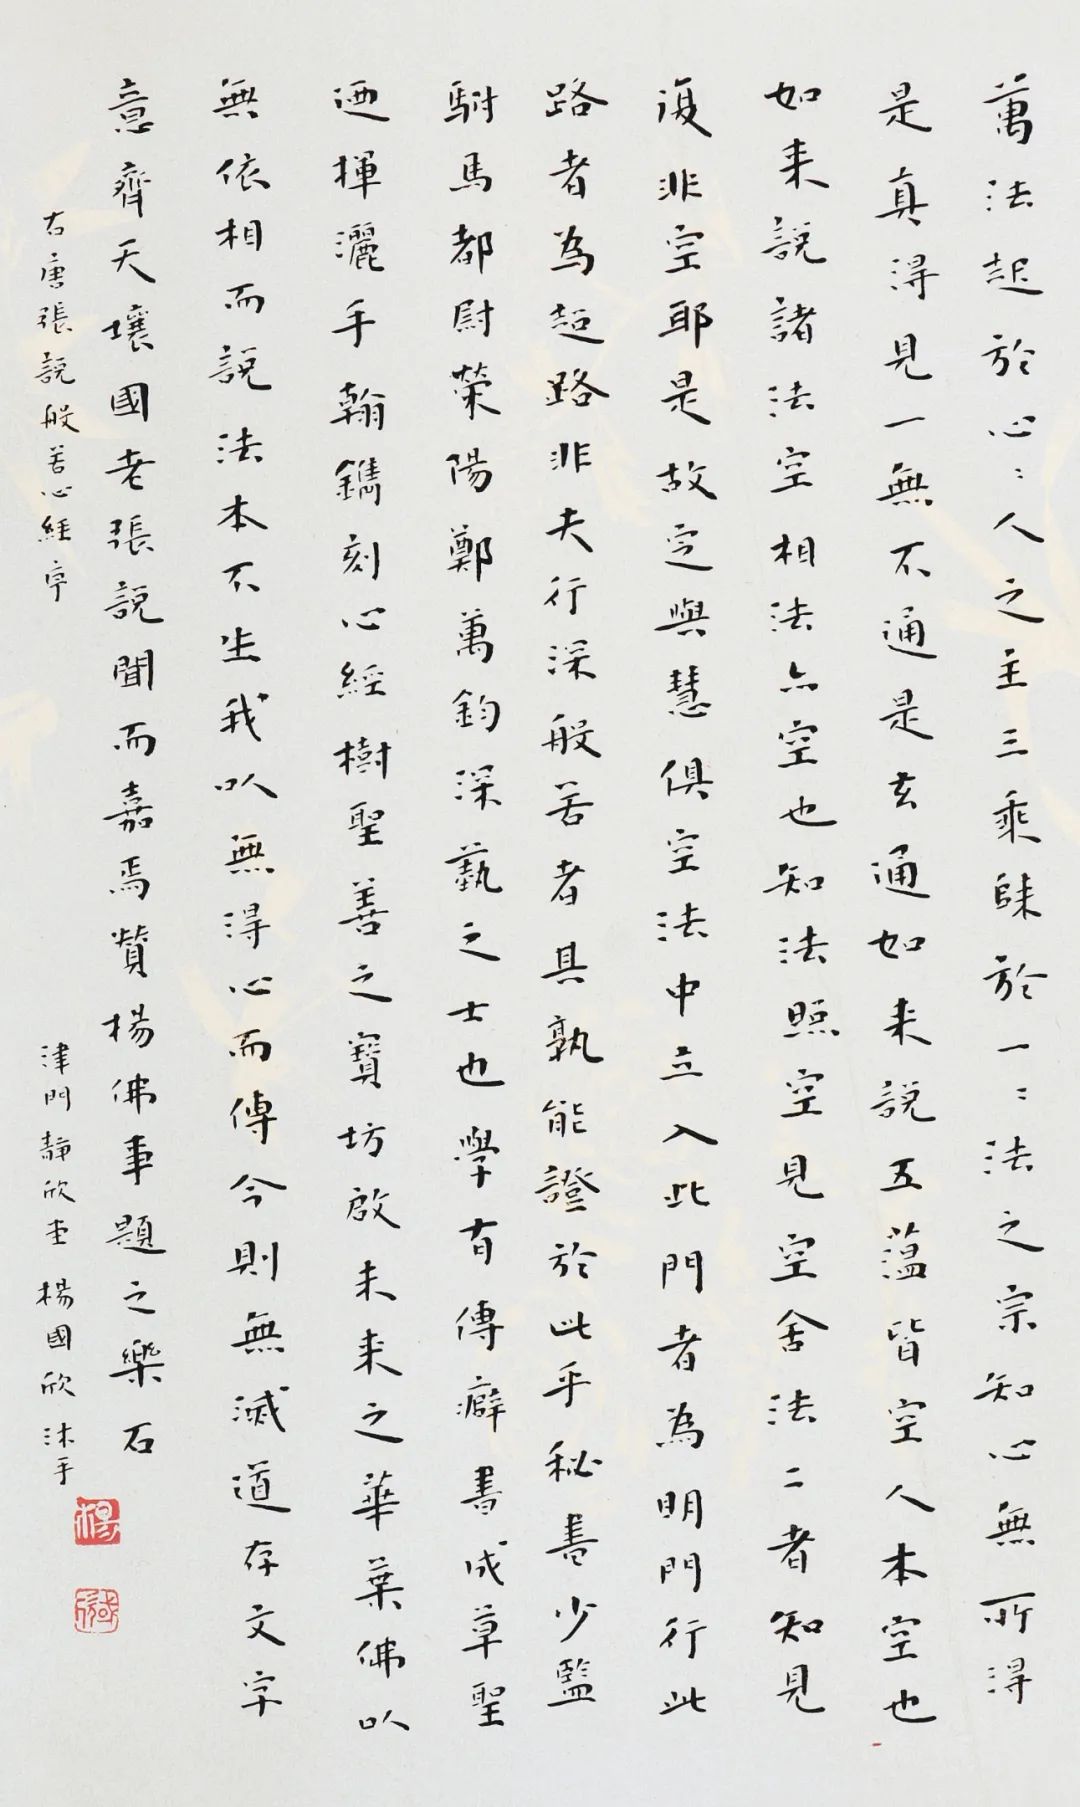 萬法起於心〻人之主三乘歸於一〻法之宗知心無所得
是真得見一無不通是玄通如来說五蕰皆空人本空也
如来說諸法空相法亦空也知法照空見空舍法二者知見
復非空耶是故定與慧俱空法中立入此門者為明門行此
路者為超路非夫行深般若者其孰能證於此乎秘書少監
駙馬都尉榮陽鄭萬鈞深藝之士也學有傳癖書成草聖
迺揮灑手翰鐫刻心經樹聖善之寶坊啟未来之華葉佛以
無依相而說法本不生我以無得心而傳今則無滅道存文字
意齊天壤國老張說聞而嘉焉贊楊佛事題之樂石
右唐張說般若心經序
津門靜欣堂 楊國欣沐手
楊
國欣